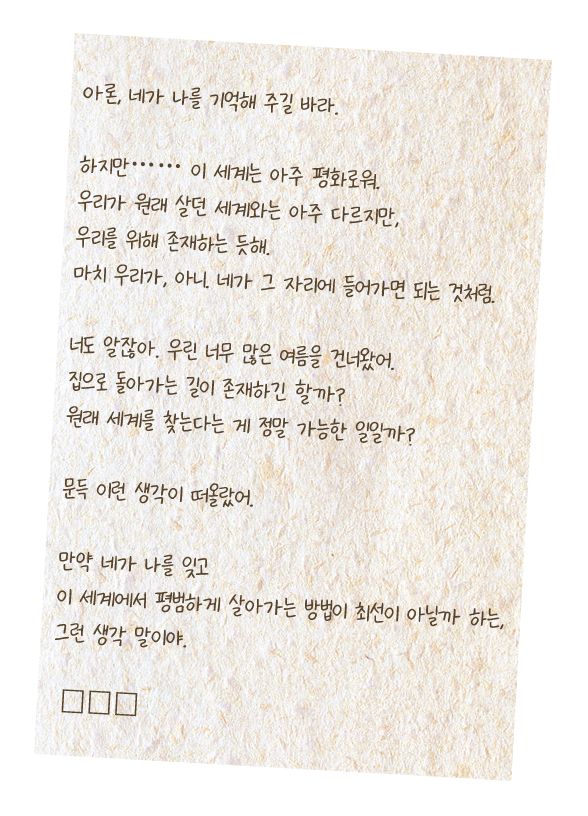 아론, 네가 나를 기억해 주길 바라.
하지만…… 이 세계는 아주 평화로워.
우리가 원래 살던 세계와는 아주 다르지만,
우리를 위해 존재하는 듯해.
마치 우리가, 아니. 네가 그 자리에 들어가면 되는 것처럼.
너도 알잖아. 우린 너무 많은 여름을 건너왔어.
집으로 돌아가는 길이 존재하긴 할까?
원래 세계를 찾는다는 게 정말 가능한 일일까?
문득 이런 생각이 떠올랐어.
만약 네가 나를 잊고
이 세계에서 평범하게 살아가는 방법이 최선이 아닐까 하는,
그런 생각 말이야.
□□□